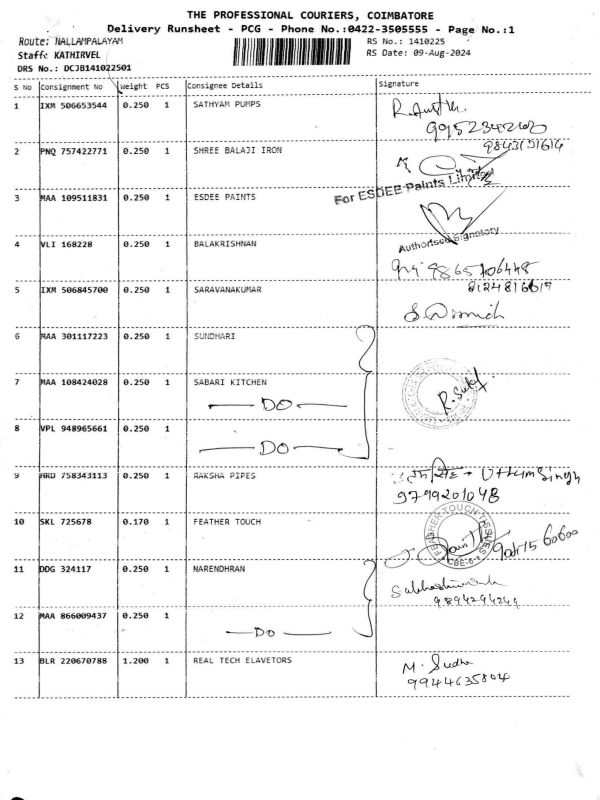 THE PROFESSIONAL COURIERS, COIMBATORE
Delivery Runsheet - PCG - Phone No.:0422-3505555 - Page No.:1
Route: NALLAMPALAYAM
RS No.: 1410225
Staff: KATHIRVEL
RS Date: 09-Aug-2024
DRS No.: DCJB141022501
S No Consignment No Weight PCS Consignee Details Signature
1 IXM 506653544 0.250 1 SATHYAM PUMPS
9843151614
2 PNQ 757422771 0.250 1 SHREE BALAJI IRON
For ESDEE Paints Limited
3 MAA 109511831 0.250 1 ESDEE PAINTS
Authorised Signatory
4 VLI 168228 0.250 1 BALAKRISHNAN
9865706448
5 IXM 506845700 0.250 1 SARAVANAKUMAR
6 MAA 301117223 0.250 1 SUNDHARI
7 MAA 108424028 0.250 1 SABARI KITCHEN
DO
8 VPL 948965661 0.250 1
DO
9 HRD 758343113 0.250 1 RAKSHA PIPES
Uttam Singh
9799201048
10 SKL 725678 0.170 1 FEATHER TOUCH
FEATHER TOUCH TISSUES
CBE-6
11 DDG 324117 0.250 1 NARENDHRAN
9894294249
12 MAA 866009437 0.250 1
DO
13 BLR 220670788 1.200 1 REAL TECH ELAVETORS
M. Sudha
9944635804